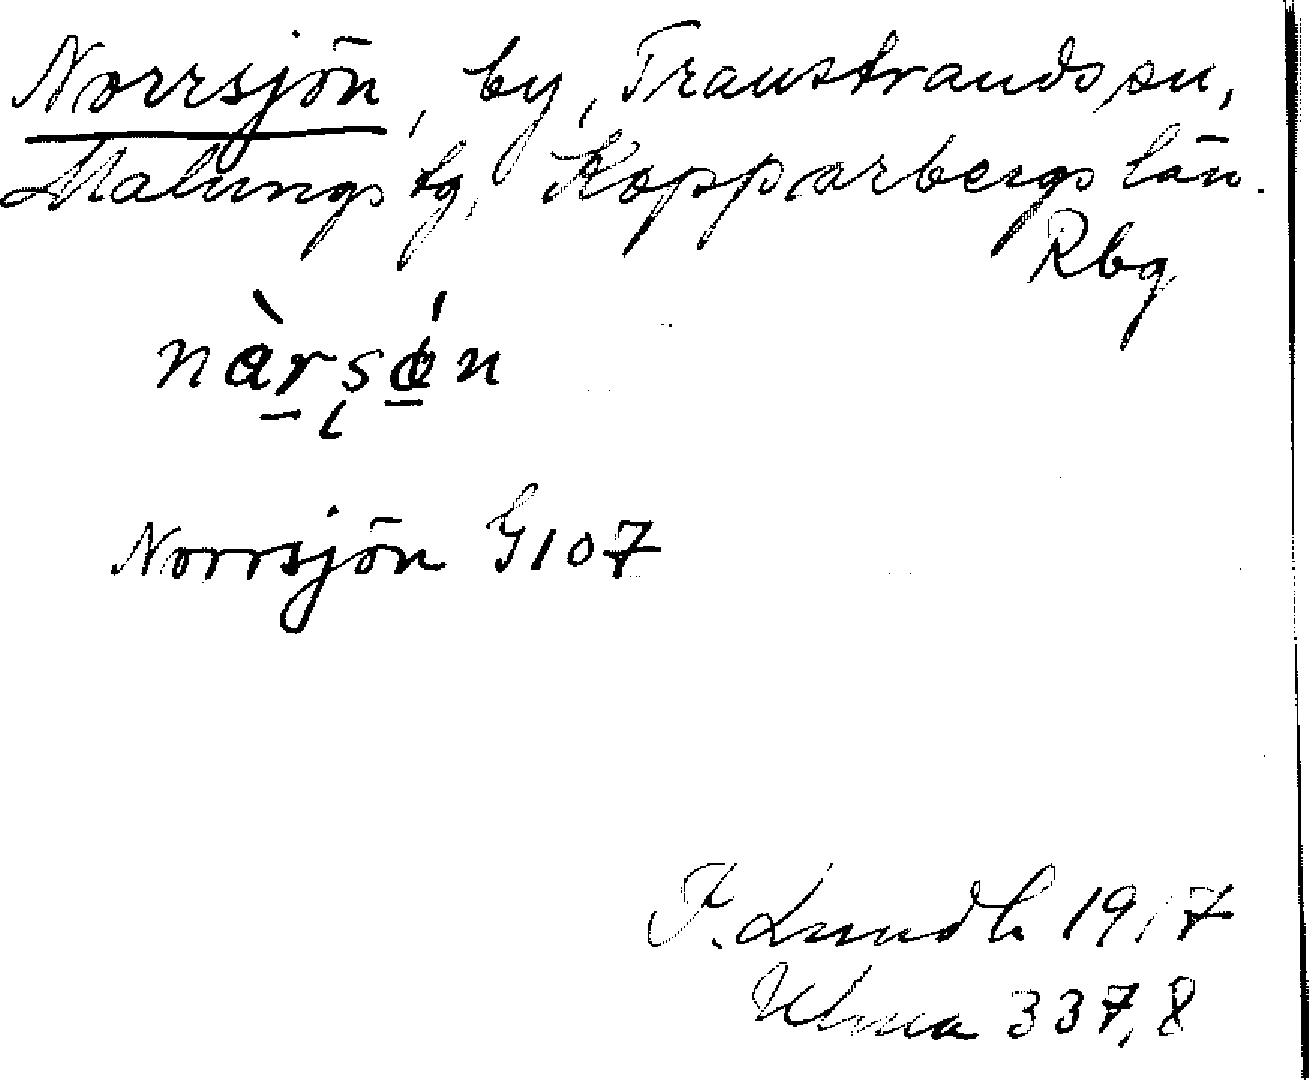 Norrsjön, by, Transtrands sn,
Malungs tg, Kopparbergs län.
Rbg
Norrsjön G 107
F. Lundh 1917
Ulma 337,8